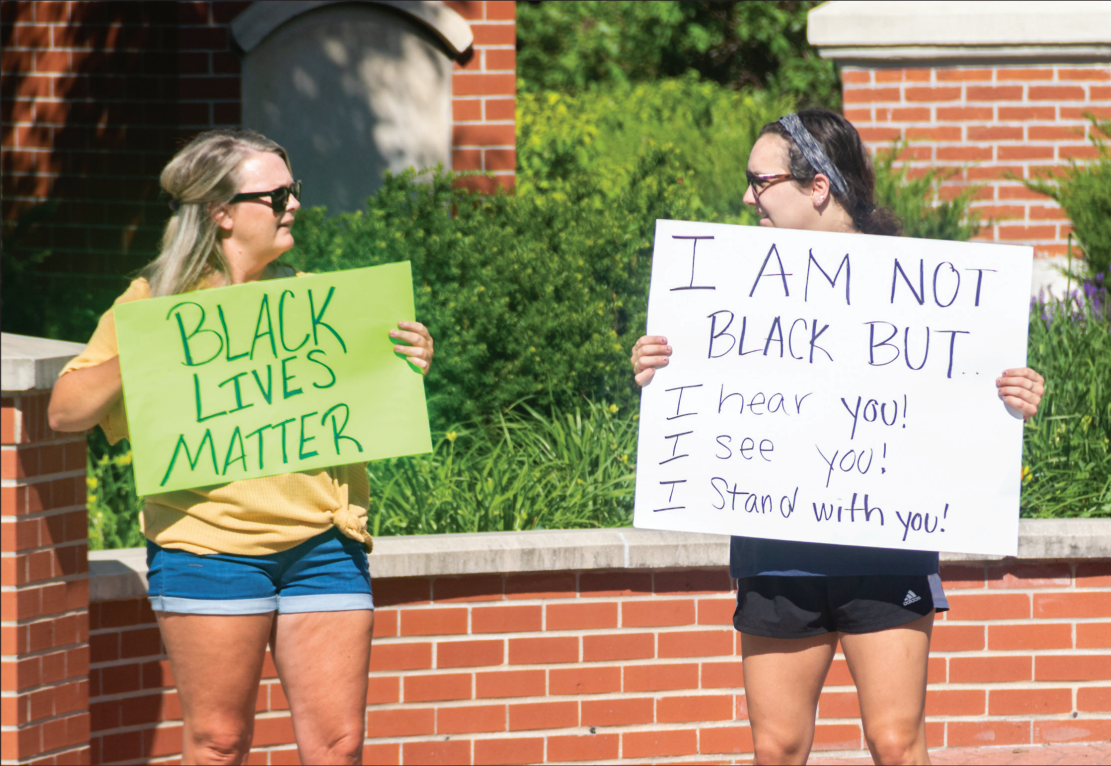 BLACK
LIVES
MATTER
I AM NOT
BLACK BUT..
I hear you!
I see you!
I Stand with you!
adidas